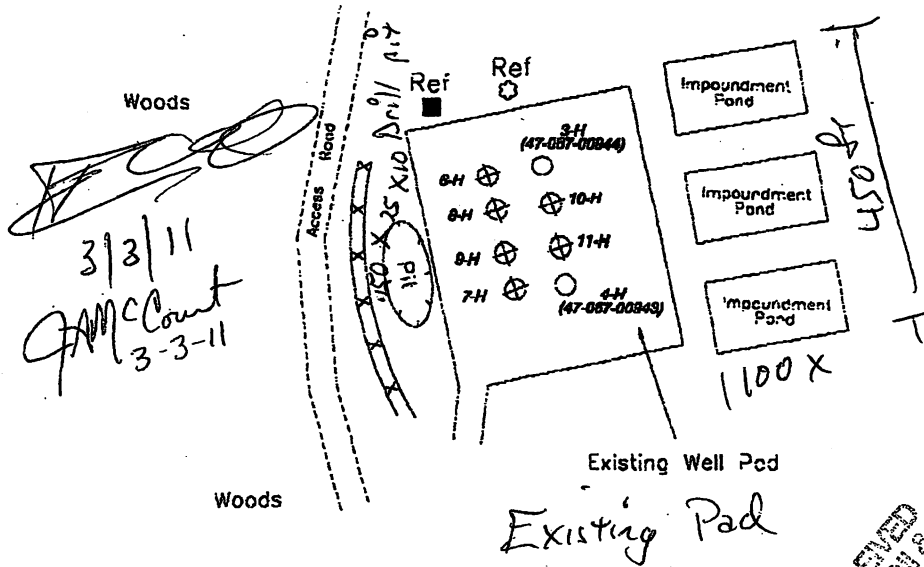 Woods
3/3/11
JAMcCourt
3-3-11
Access Road
150 X 25 X 10 Drill pit
Pit
Ref
Ref
3-H
(47-067-00944)
6-H
8-H
10-H
9-H
11-H
7-H
4-H
(47-067-00943)
Impoundment
Pond
Impoundment
Pond
Impoundment
Pond
450
1100 X
Existing Well Pad
Existing Pad
Woods